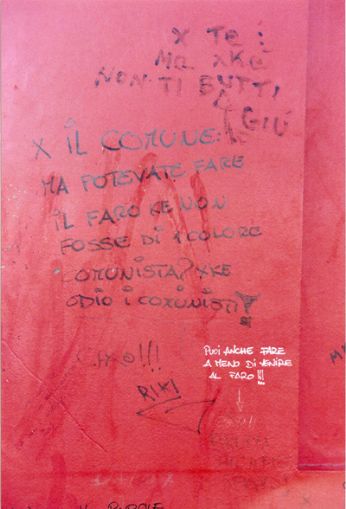 X TE :
MA XKè
NON TI BUTTI
GIÚ
X IL COMUNE:
MA POTEVATE FARE
IL FARO KE NON
FOSSE DI 1 COLORE
COMUNISTA? XKE
ODIO I COMUNISTI!
CIAO!!!
RIKI
PUOI ANCHE FARE
A MENO DI VENIRE
AL FARO!!!